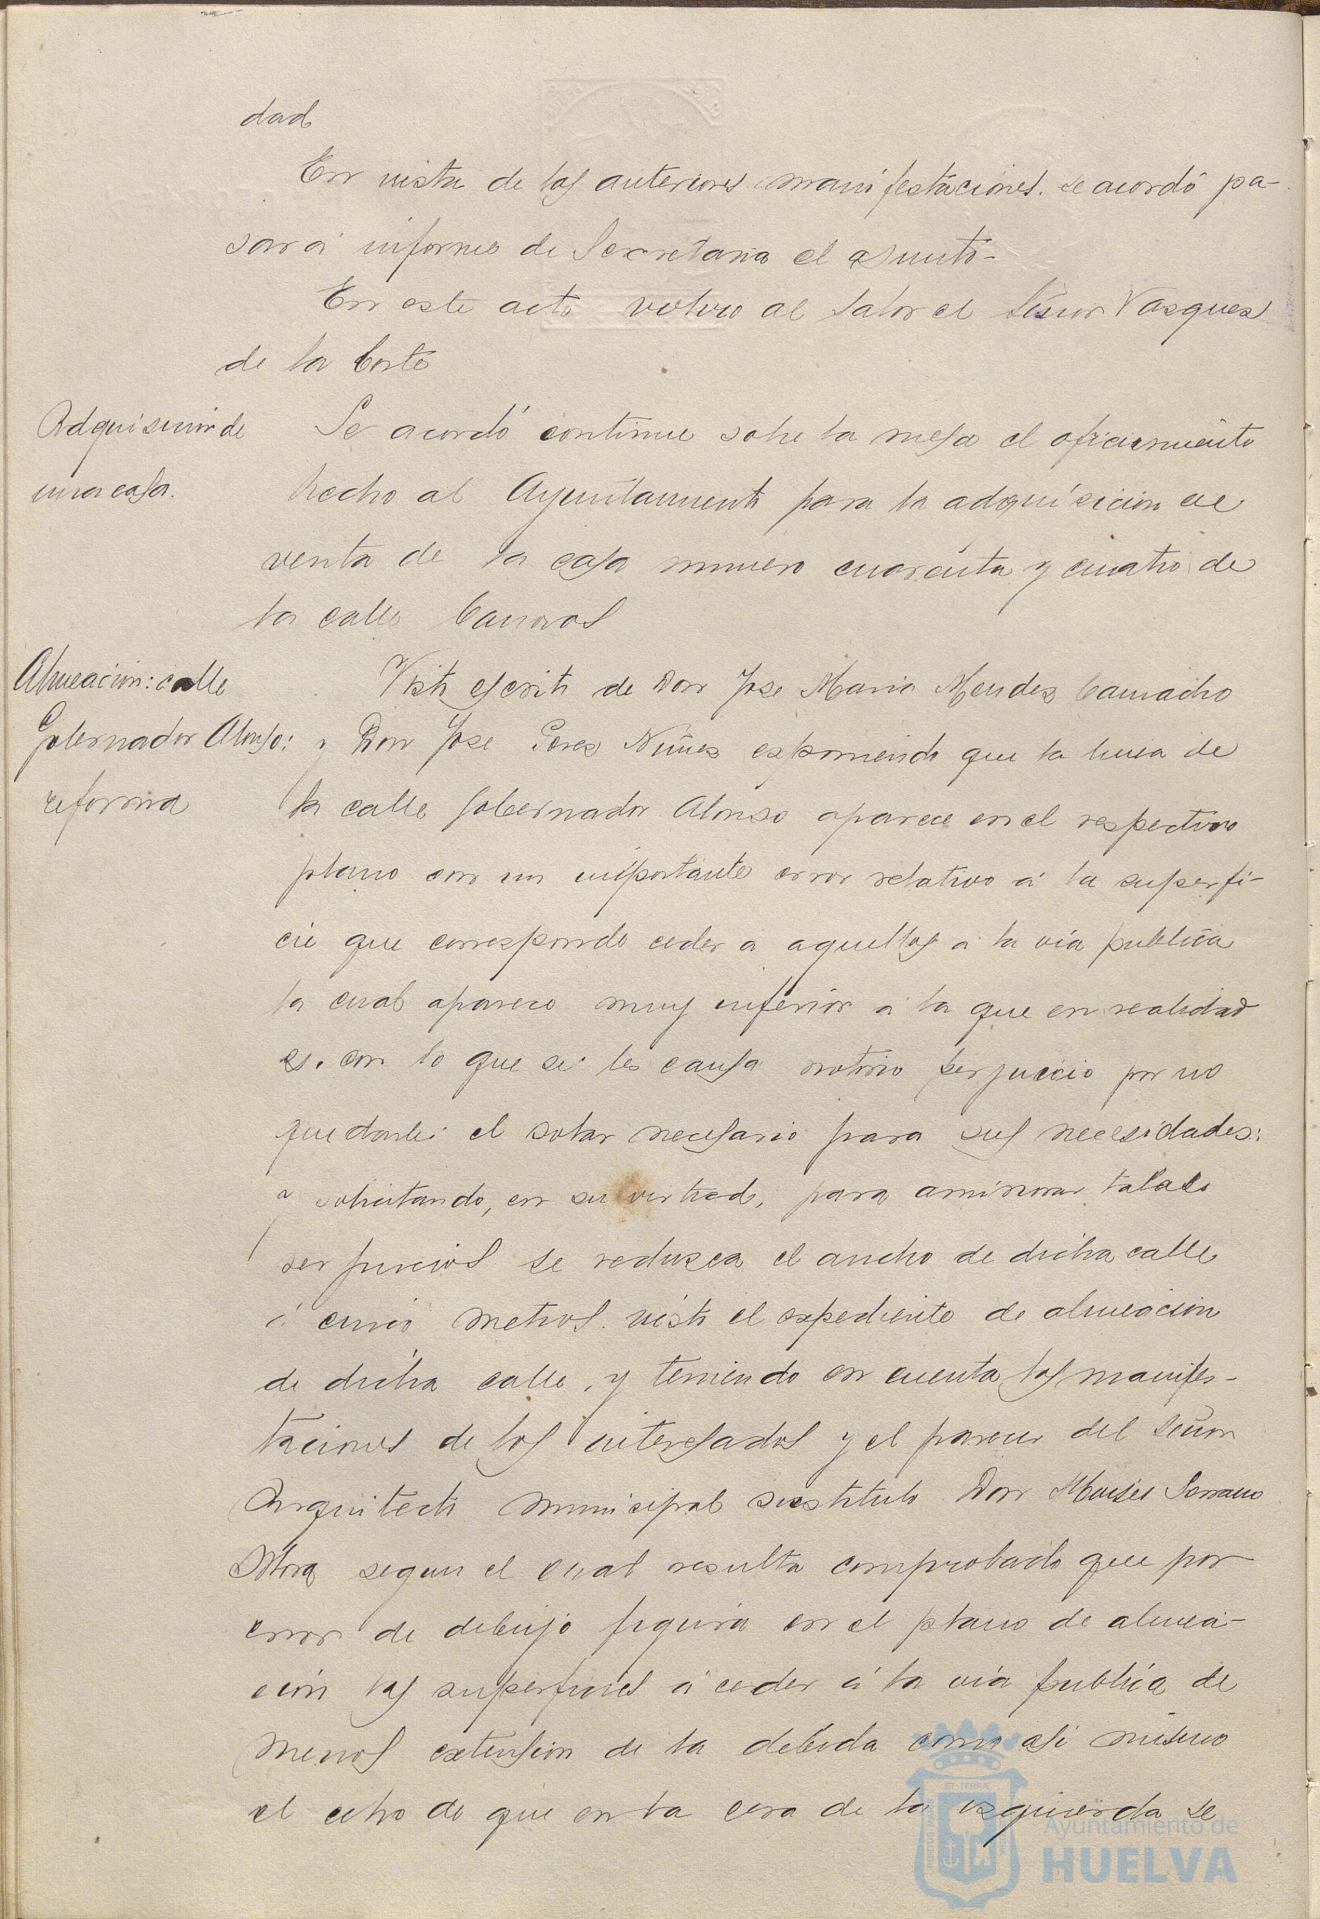 dad
En vista de las anteriores manifestaciones. se acordó pa-
sar á informe de Secretaria el asunto-
En este acto volvio al salon el Señor Vasques
de la Corte
Adquisicion de
una casa.
Se acordó continue sobre la mesa el ofrecimiento
hecho al Ayuntamiento para la adquisicion en
venta de la casa numero cuarenta y cuatro de
la calle
Alineacion: calle
Gobernador Alonso:
reforma
Visto escrito de Don Jose Maria Mendes Camacho
y Don Jose Peres Nuñes esponiendo que la linea de
la calle Gobernador Alonso aparece en el respectivo
plano con un importante error relativo á la superfi-
cie que corresponde ceder a aquellos a la via publica
la cual aparece muy inferior á la que en realidad
es. con lo que se les causa notorio perjuicio por no
quedarles el solar necesario para sus necesidades:
y solicitando, en su virtud, para aminorar tales
perjuicios se redusca el ancho de dicha calle
á cinco metros. visto el expediente de alineacion
de dicha calle, y teniendo en cuenta las manifes-
taciones de los interesados y el parecer del Señor
Arquitecto municipal sustituto Don Moises Serrano
Mora segun el cual resulta comprobado que por
error de dibujo figura en el plano de alinea-
cion las superficies á ceder á la via publica de
menos extension de la debida como asi mismo
el echo de que en la cera de la izquierda se
Ayuntamiento de
HUELVA